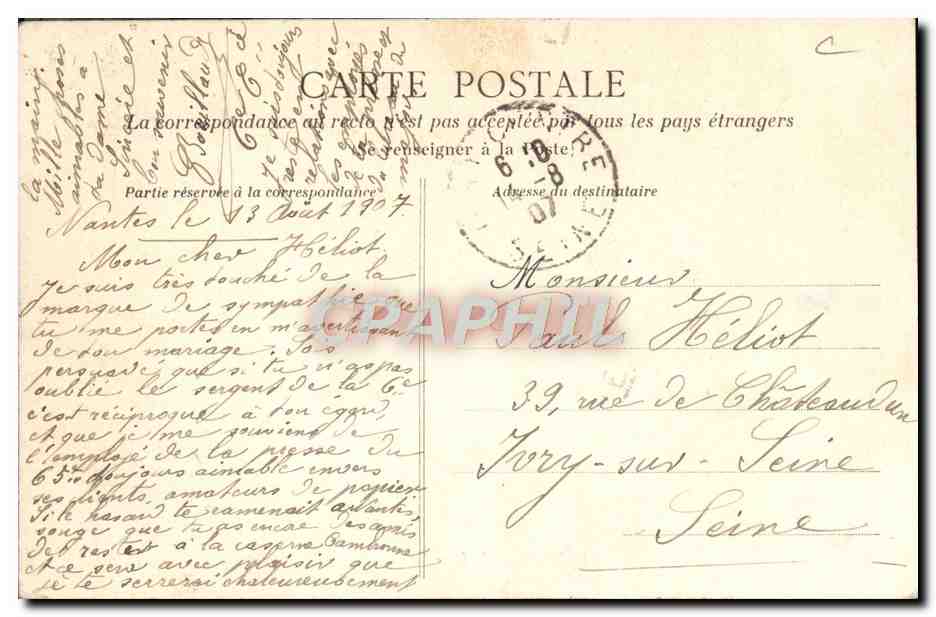 CARTE POSTALE
La correspondance au recto n'est pas acceptée par tous les pays étrangers
(Se renseigner à la Poste)
Partie réservée à la correspondance
Adresse du destinataire
6
14 -8
07
SEINE
Nantes le 13 Août 1907.
Mon cher Héliot.
Je suis très touché de la
marque de sympathie que
tu me portes en m'avertissant
de ton mariage. Sois
persuadé que si tu n'as pas
oublié le sergent de la 6e
c'est réciproque à ton égard,
et que je me souviens de
l'employé de la presse du
65e toujours aimable envers
ses clients, amateurs de papier
Si le hasard te ramenait à Nantes
songe que tu as encore des amis
de restes à la caserne Cambronne
et ce sera avec plaisir que
je te serrerai chaleureusement
la main.
Mille choses
aimables à
ta dame
et
Ton souvenir
6e Cie
Je suis toujours
resté en
relations avec
les employés
de
de
musique
Monsieur
Paul Héliot
39, rue de Châteaudun
Ivry-sur-Seine
Seine
CPAPHIL
c